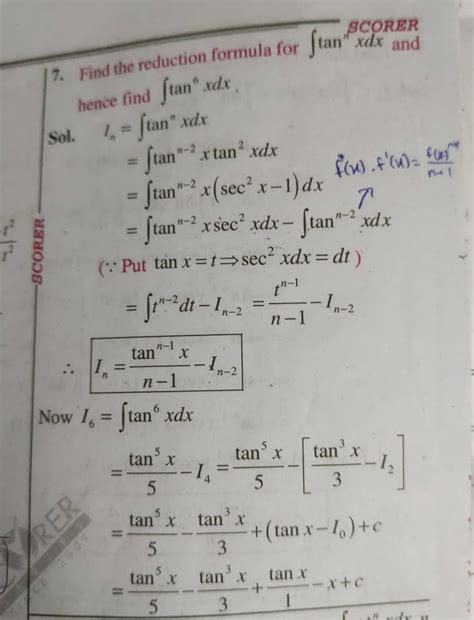 SCORER
7. Find the reduction formula for ∫tanⁿ xdx and
hence find ∫tan⁶ xdx.
Sol. Iₙ = ∫tanⁿ xdx
= ∫tanⁿ⁻² x tan² xdx
= ∫tanⁿ⁻² x(sec² x−1)dx
= ∫tanⁿ⁻² x sec² xdx − ∫tanⁿ⁻² xdx
(∵ Put tan x = t ⇒ sec² xdx = dt )
= ∫tⁿ⁻²dt − Iₙ₋₂ = tⁿ⁻¹/(n−1) − Iₙ₋₂
∴ Iₙ = tanⁿ⁻¹ x/(n−1) − Iₙ₋₂
Now I₆ = ∫tan⁶ xdx
= tan⁵ x/5 − I₄ = tan⁵ x/5 − [tan³ x/3 − I₂]
= tan⁵ x/5 − tan³ x/3 + (tan x − I₀) + c
= tan⁵ x/5 − tan³ x/3 + tan x/1 − x + c
SCORER